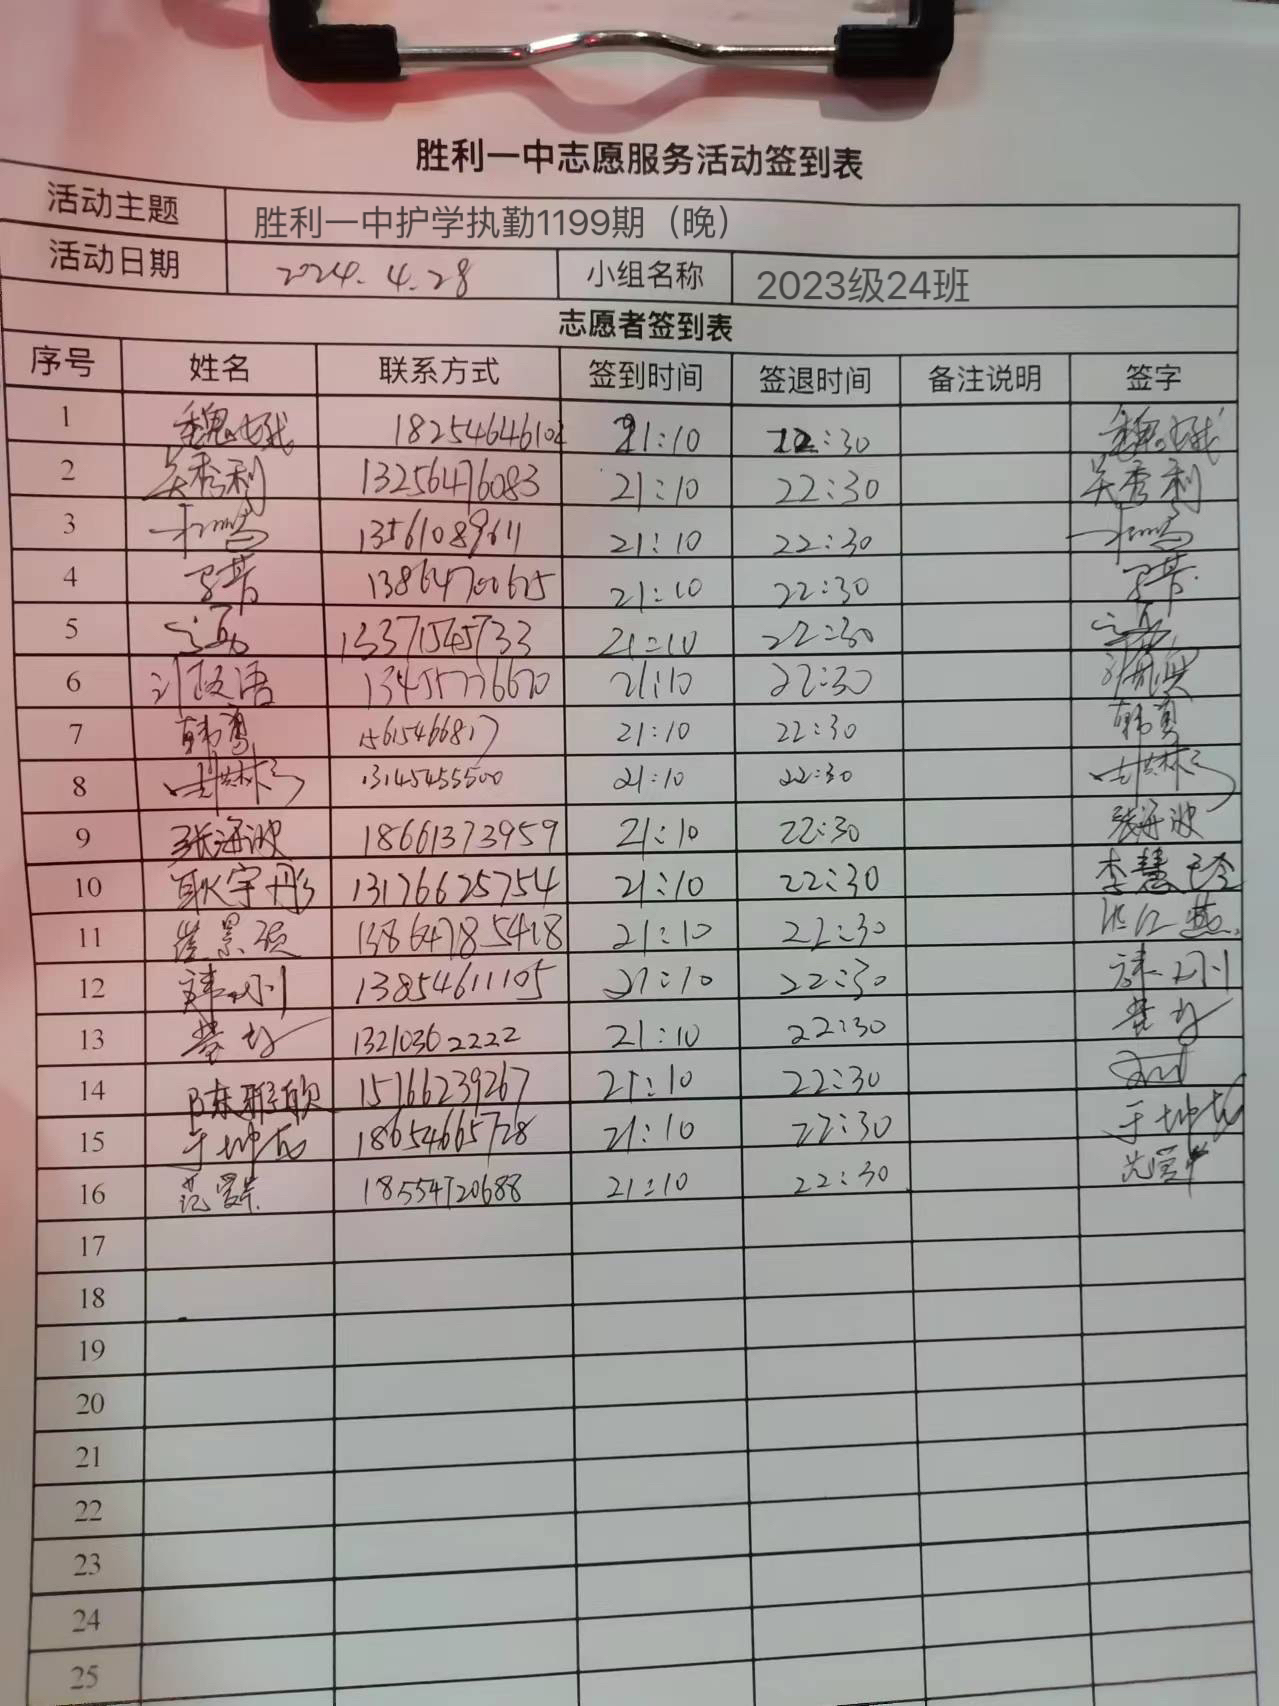 胜利一中志愿服务活动签到表
活动主题 胜利一中护学执勤1199期（晚）
活动日期 2024.4.28 小组名称 2023级24班
志愿者签到表
序号 姓名 联系方式 签到时间 签退时间 备注说明 签字
1 21:10 22:30
2 关秀利 13256476083 21:10 22:30 关秀利
3 13561089611 21:10 22:30
4 13864700675 21:10 22:30
5 13371545733 21:10 22:30
6 21:10 22:30
7 韩勇 15615466817 21:10 22:30 韩勇
8 13145455500 21:10 22:30
9 张海波 18661373959 21:10 22:30 张海波
10 耿宇彤 13176625754 21:10 22:30 李慧玲
11 21:10 22:30
12 13854611105 21:10 22:30
13 13210362222 21:10 22:30
14 陈雅欣 15166239267 21:10 22:30
15 于坤龙 18654665728 21:10 22:30 于坤龙
16 18554720688 21:10 22:30
17
18
19
20
21
22
23
24
25